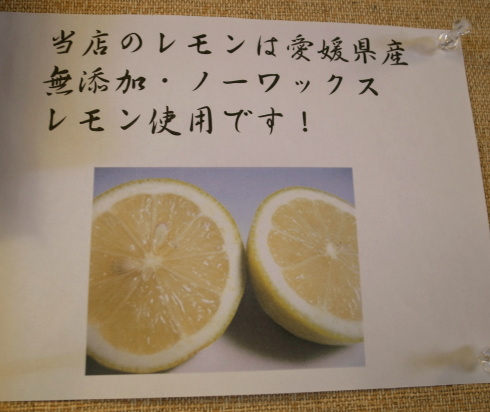 当店のレモンは愛媛県産
無添加・ノーワックス
レモン使用です！